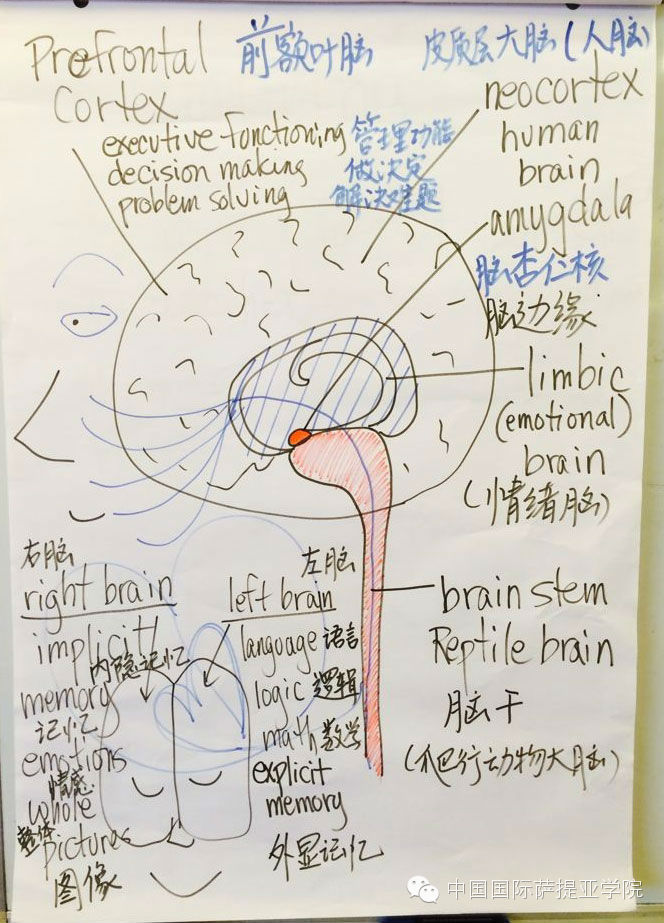 Prefrontal
Cortex
前额叶脑
executive functioning 管理功能
decision making 做决定
problem solving 解决难题
皮质层大脑(人脑)
neocortex
human
brain
amygdala
脑杏仁核
脑边缘
limbic
(emotional)
brain
(情绪脑)
brain stem
Reptile brain
脑干
(爬行动物大脑)
右脑
right brain
implicit
内隐记忆
memory
记忆
emotions
情感
whole
整体
pictures
图像
左脑
left brain
language 语言
logic 逻辑
math 数学
explicit
memory
外显记忆
中国国际萨提亚学院